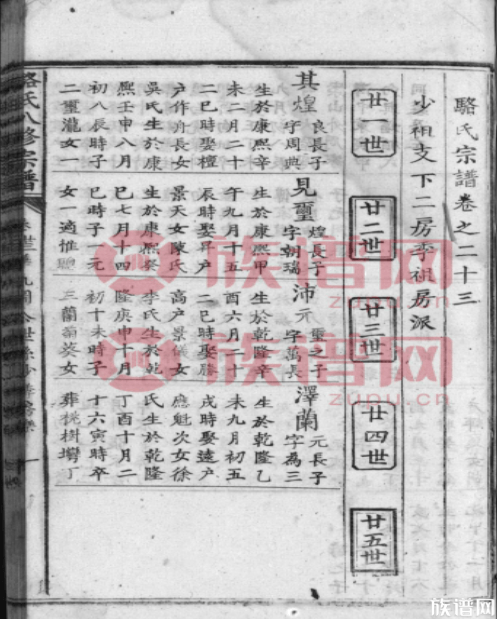 駱氏宗譜卷之二十三
少祖支下二房季祖房派
廿一世
廿二世
廿三世
廿四世
廿五世
其煌
良長子
字周典
生於康熙辛
未二月二十
二巳時娶檀
户作舟長女
吳氏生於康
熙壬申八月
初八辰時子
二璽瀧女一
見璽
煌長子
字朝瑞
生於康熙甲
午九月十五
辰時娶昇户
景天女陳氏
生於康熙癸
巳七月十四
巳時子一元
女一適惟
沛元
璽之子
字萬長
生於乾隆辛
酉六月二十
二巳時娶勝
高户景儀女
李氏生於乾
隆庚申十月
初十未時子
三蘭葵女
澤蘭
元長子
字為三
生於乾隆乙
未九月初五
戌時娶遠户
應魁次女徐
氏生於乾隆
丁酉十月二
十六寅時卒
葬桃樹塆丁
駱氏八修宗譜
族谱网
族谱网
族谱网